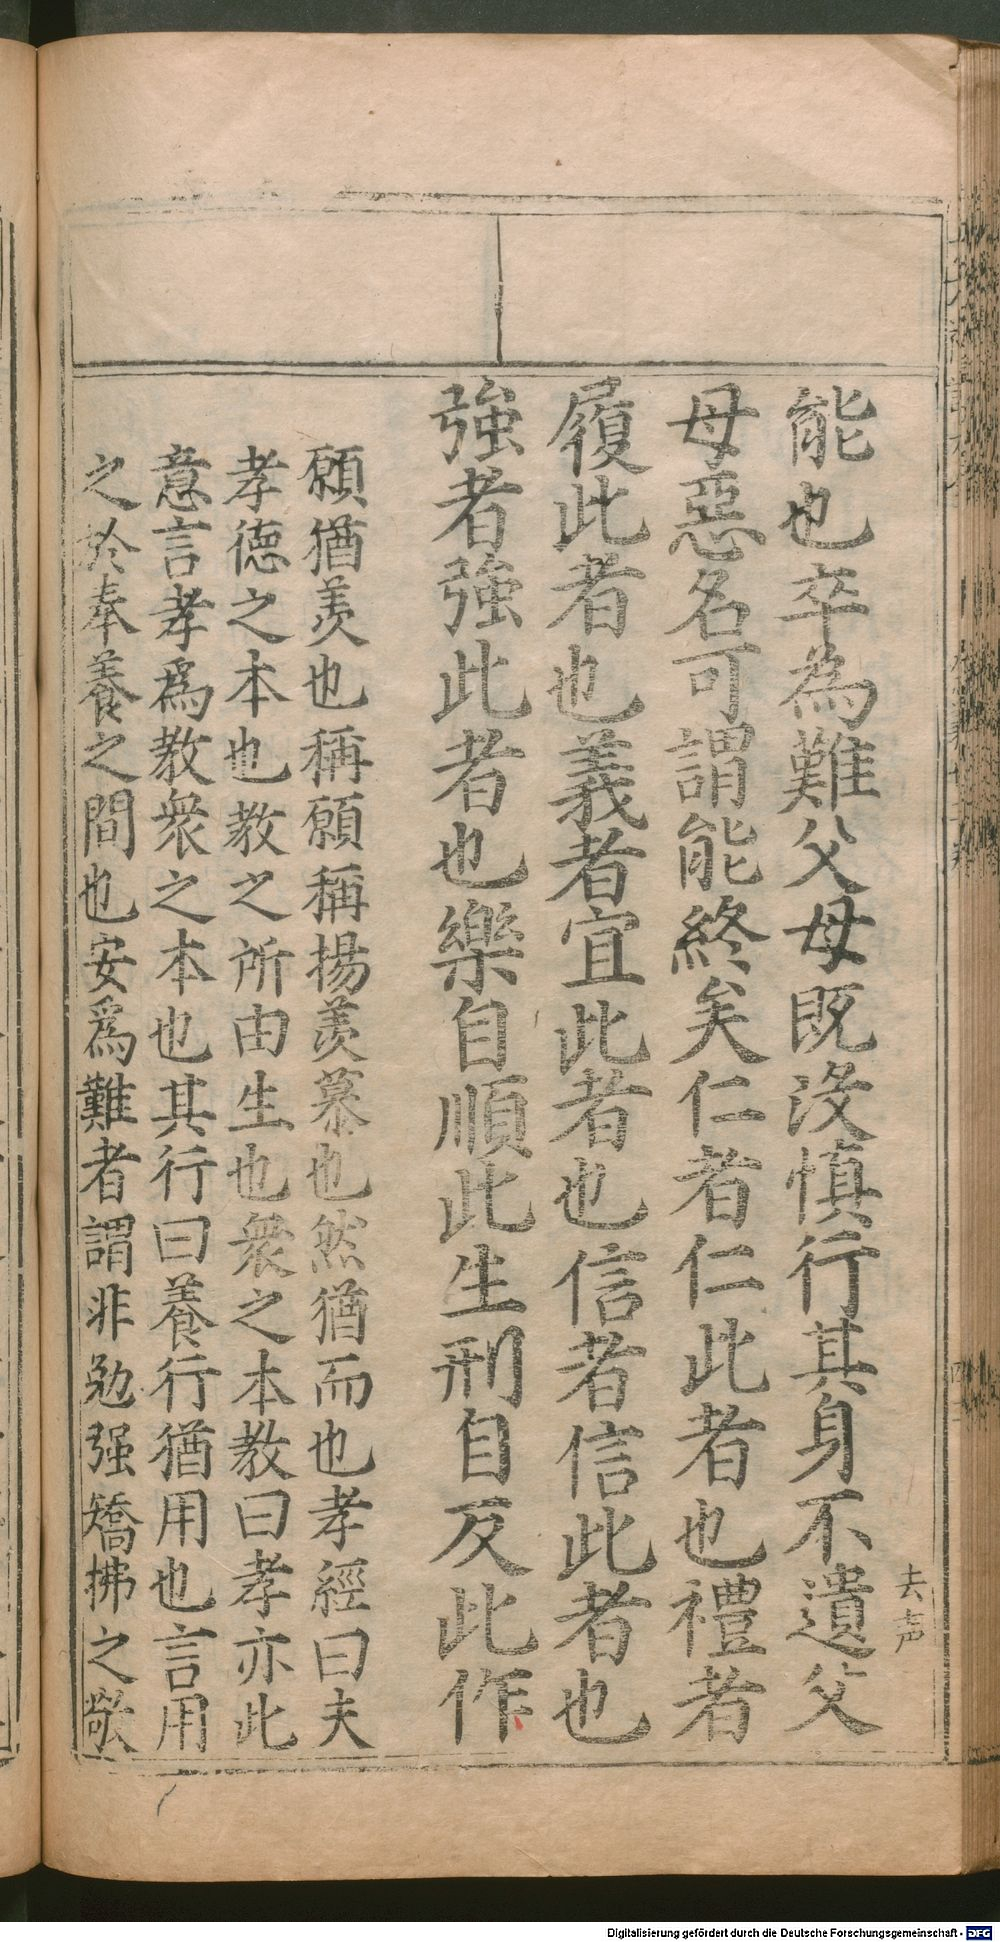 能也卒為難父母既没慎行其身不遺父
去声
母惡名可謂能終矣仁者仁此者也禮者
履此者也義者宜此者也信者信此者也
強者強此者也樂自順此生刑自反此作
願猶羨也稱願稱揚羨慕也然猶而也孝經曰夫
孝德之本也教之所由生也衆之本教曰孝亦此
意言孝爲教衆之本也其行曰養行猶用也言用
之於奉養之間也安爲難者謂非勉强矯拂之敬
Digitalisierung gefördert durch die Deutsche Forschungsgemeinschaft - DFG